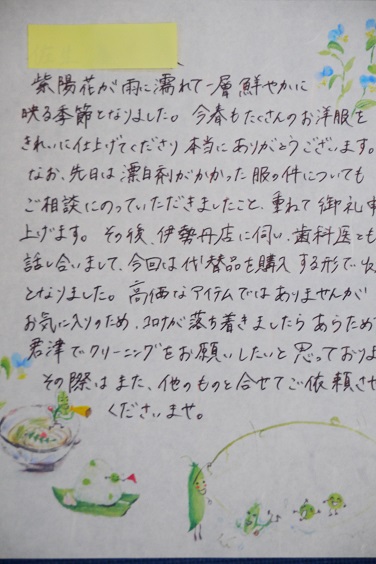 紫陽花が雨に濡れて一層鮮やかに
映る季節となりました。今春もたくさんのお洋服を
きれいに仕上げてくださり本当にありがとうございます。
なお、先日は漂白剤がかかった服の件についても
ご相談にのっていただきましたこと、重ねて御礼申
上げます。その後、伊勢丹店に伺い、歯科医とも
話し合いまして、今回は代替品を購入する形で
となりました。高価なアイテムではありませんが
お気に入りのため、コロナが落ち着きましたらあらため
君津でクリーニングをお願いしたいと思っており
その際はまた、他のものと合せてご依頼させ
くださいませ。